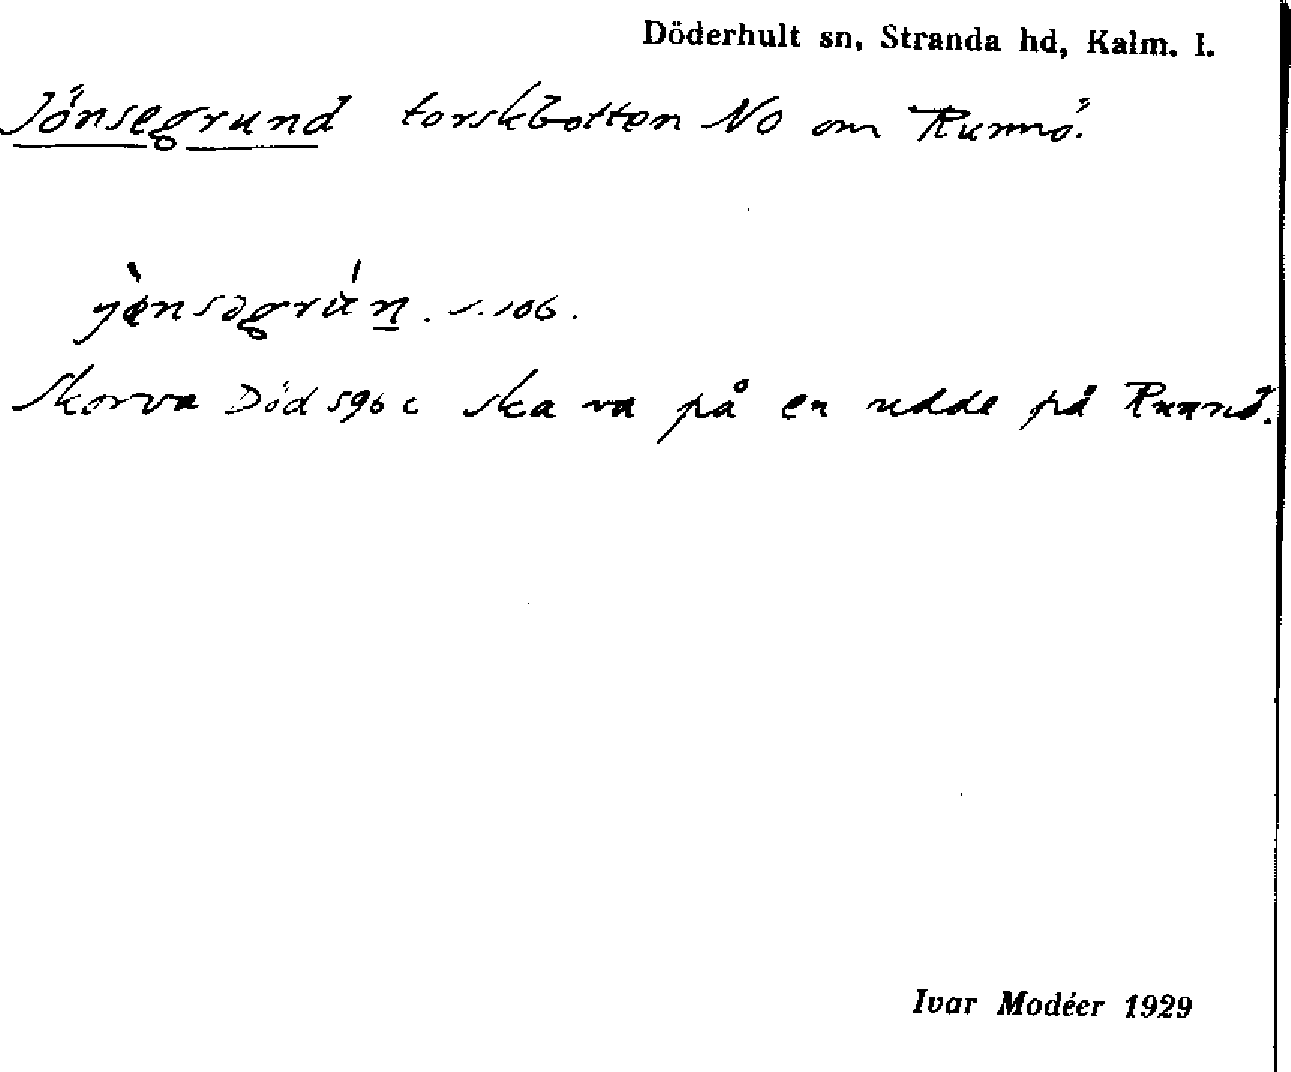 Döderhult sn, Stranda hd, Kalm. l.
Jönsegrund torskbotten NO om Runnö.
jònsəgrún. s. 106.
Skorva Död 596 c ska va på en udde på Runnö.
Ivar Modéer 1929